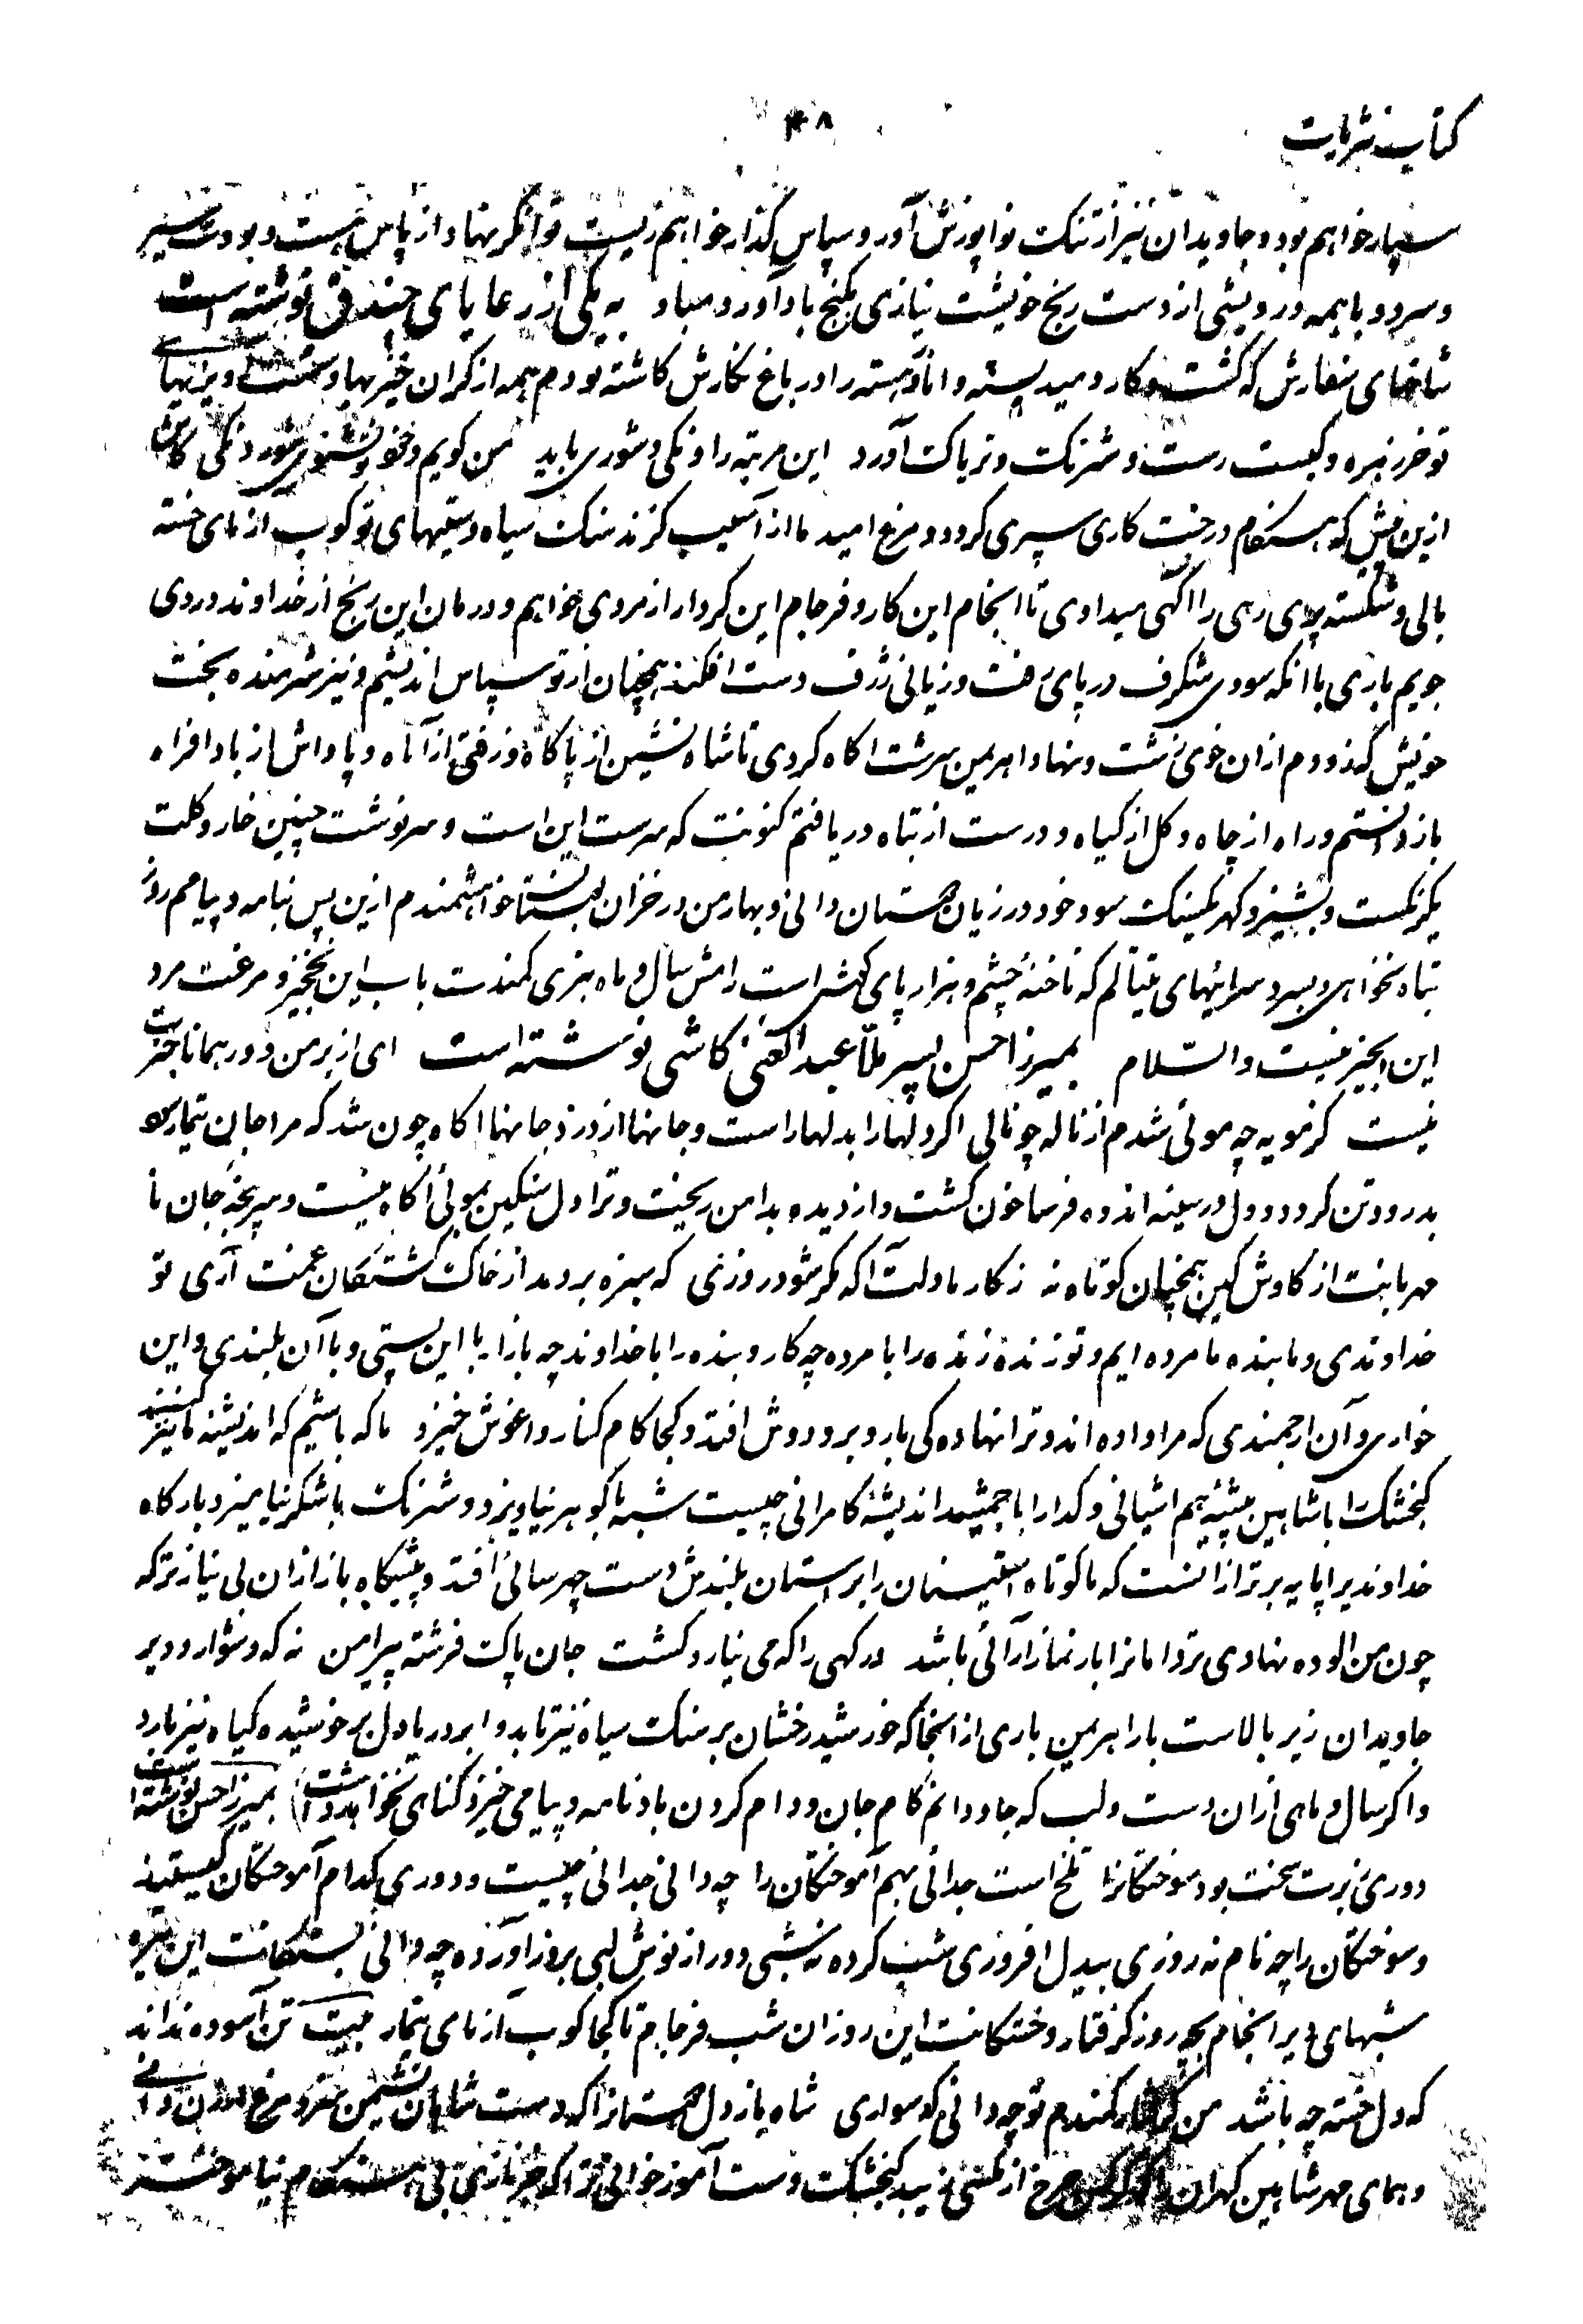 کتاب نثریات
۴۸
سپار خواهم بود و جاویدان نیز از تنک نوا پوزش آور و سپاس گذار خواهم زیست توانگر نهاد از پاس هست و بودت سیر
و سرد و با همه درویشی از دست رنج خویشت نیازی بگنج باد آورد مباد به یکی از رعایای چندق نوشته است
شاخهای سفارش که گشت و کار و مید بسته و اناد هسته را در باغ نگارش کاشته بودم همه از گران خیزیها و سست ویزیها
تو خر زهره و کبست رست و شرنگ و تریاک آورد این مرتبه را ونکی و شوری باید من گویم و خود بشنوی شور ونکی کاش
ازین پیش که هنگام درخت کاری سپری گردد و مرغ امید ما از آسیب گزند سنگ سیاه دستیهای تو کوب آزمای خسته
بالی و شکسته پری رهی را آگهی میدادی تا انجام این کار و فرجام این کردار از مردی خواهم و درمان این رنج از خداوند دردی
جویم باری با انکه سودی شگرف در پای رفت و زیانی ژرف دست افکند همچنان از تو سپاس اندیشم و نیز شرمنده بخت
خویش که زودم از ان خوی زشت و نهاد اهریمن سرشت اگاه کردی تا شاه نشین از پاگاه و زفتی از آماه و پاداش از باد افراه
باز دانستم و راه از چاه و گل از گیاه و درست از تباه دریافتم کنونت که سرست این است و سرنوشت چنین خار و گلت
یکرنگست و بشیز و گهر همسنگ سود خود در زیان همستان دانی و بهار من در خزان بستان خواهشمندم ازین پس بنامه و پیامم روز
تباه نخواهی و بسرد سرائیهای تیتالم که ناخنهٔ چشم و هزار پای گوش است رامش سال و ماه بهزی کمندت باب این نخجیز و مرغت مرد
این انجیر نیست والسلام بمیرزا حسن پسر ملا عبدالغنی کاشی نوشته است ای از بر من دور همانا خبرت
نیست کز مویه چه موئی شدم از ناله چو نالی اگر دلها را بدلها راست و جانها از درد جانها اگاه چون شد که مرا جان تیمار سو
بدرود تن کرد و دل در سینه اندوه فرسا خون گشت و از دیده بدامن ریخت و ترا دل سنگین بموئی آگاه نیست و سر پنجه جان نا
مهربانت از کاوش کین همچنان کوتاه نه ز کار ما دلت آگه مگر شود روزی که سبزه بردمد از خاک کشتگان غمت آری تو
خداوندی و ما بنده ما مرده ایم و تو زندهٔ زنده را با مرده چه کار و بنده را با خداوند چه بازار با این پستی و با آن بلندی و این
خواری و آن ارجمندی که مرا داده اند و ترا نهاده کی بار و بر و دوش افتد و کجا کام کنار و اغوش خیزد ما که باشیم که اندیشهٔ ما نیز کنند
گنجشک را با شاهین پیشهٔ هم اشیانی و گدا را با جمشید اندیشهٔ کامرانی چیست شبه با گوهر نیاویزد و شرنگ با شکر نیامیزد بارگاه
خداوندیرا پایه برتر از انست که ما کوتاه استینان را بر استان بلندش دست چهر سائی افتد و پیشگاه باز از ان بی نیاز تر که
چون من الوده نهادی تر دامانرا بار نماز آرائی باشد در کهی را که می نیارد گشت جان پاک فرشته پیرامن نه که دشوار و دیر
جاویدان زیر بالاست بار اهرمن باری از انجا که خورشید رخشان بر سنگ سیاه نیز تابد و ابر دریا دل بر خوشیده گیاه نیز بارد
و اگر سال و ماهی از ان دست و لب که جاودانم کام جان و دام گردن باد نامه و پیامی خیزد گنای نخواهد داشت بمیرزا حسن نوشته است
دوری ز برت سخت بود سوختگانرا تلخ است جدائی بهم آموختگان را چه دانی جدائی چیست و دوری کدام آموختگان کیستند
و سوختگان را چه نام نه روزی بیدل افروزی شب کرده نه شبی دور از نوش لبی بروز آورده چه دانی بستگانت این تیره
شبهای دیر انجام بچه روز گرفتار و خستگانت این روزان شب فرجام تا کجا کوب آزمای تیمار بیت تن آسوده نداند
که دل خسته چه باشد من گرفتار کمندم تو چه دانی که سواری شاه باز دل همستانرا که دست شاهان نشیمن سزد و مرغ
و همای مهر شاهین گهران چرخ از گفتی زیبد گنجشک دست آموز خوانی ترا که جز بازی بی هنگام نیاموختند